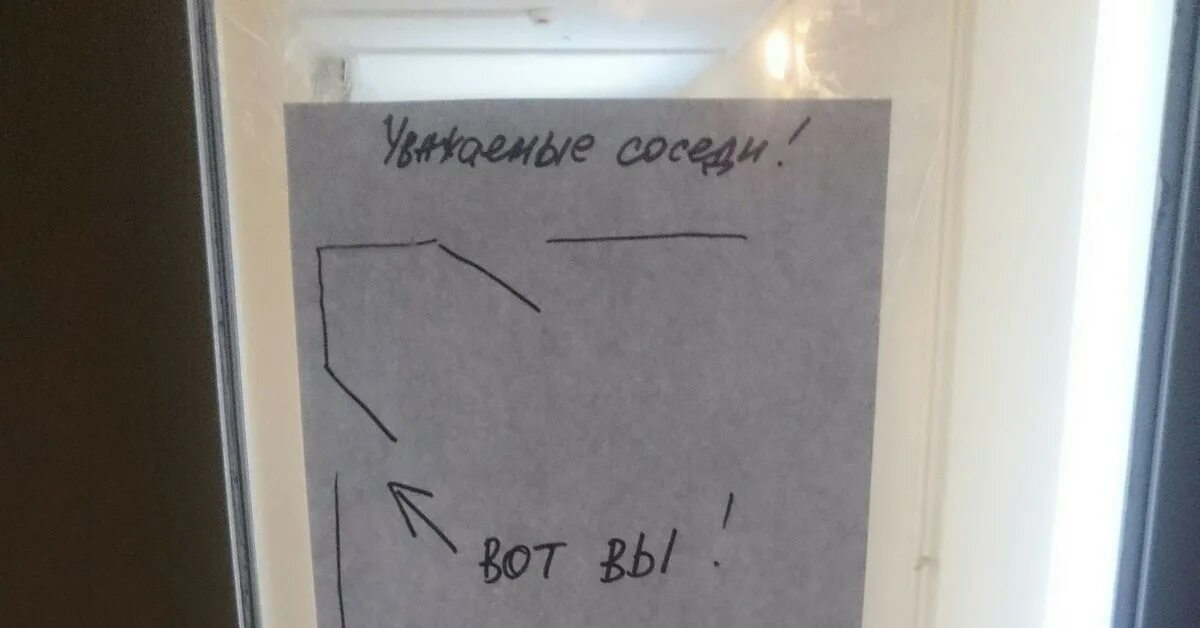 Уважаемые соседи!
ВОТ ВЫ!